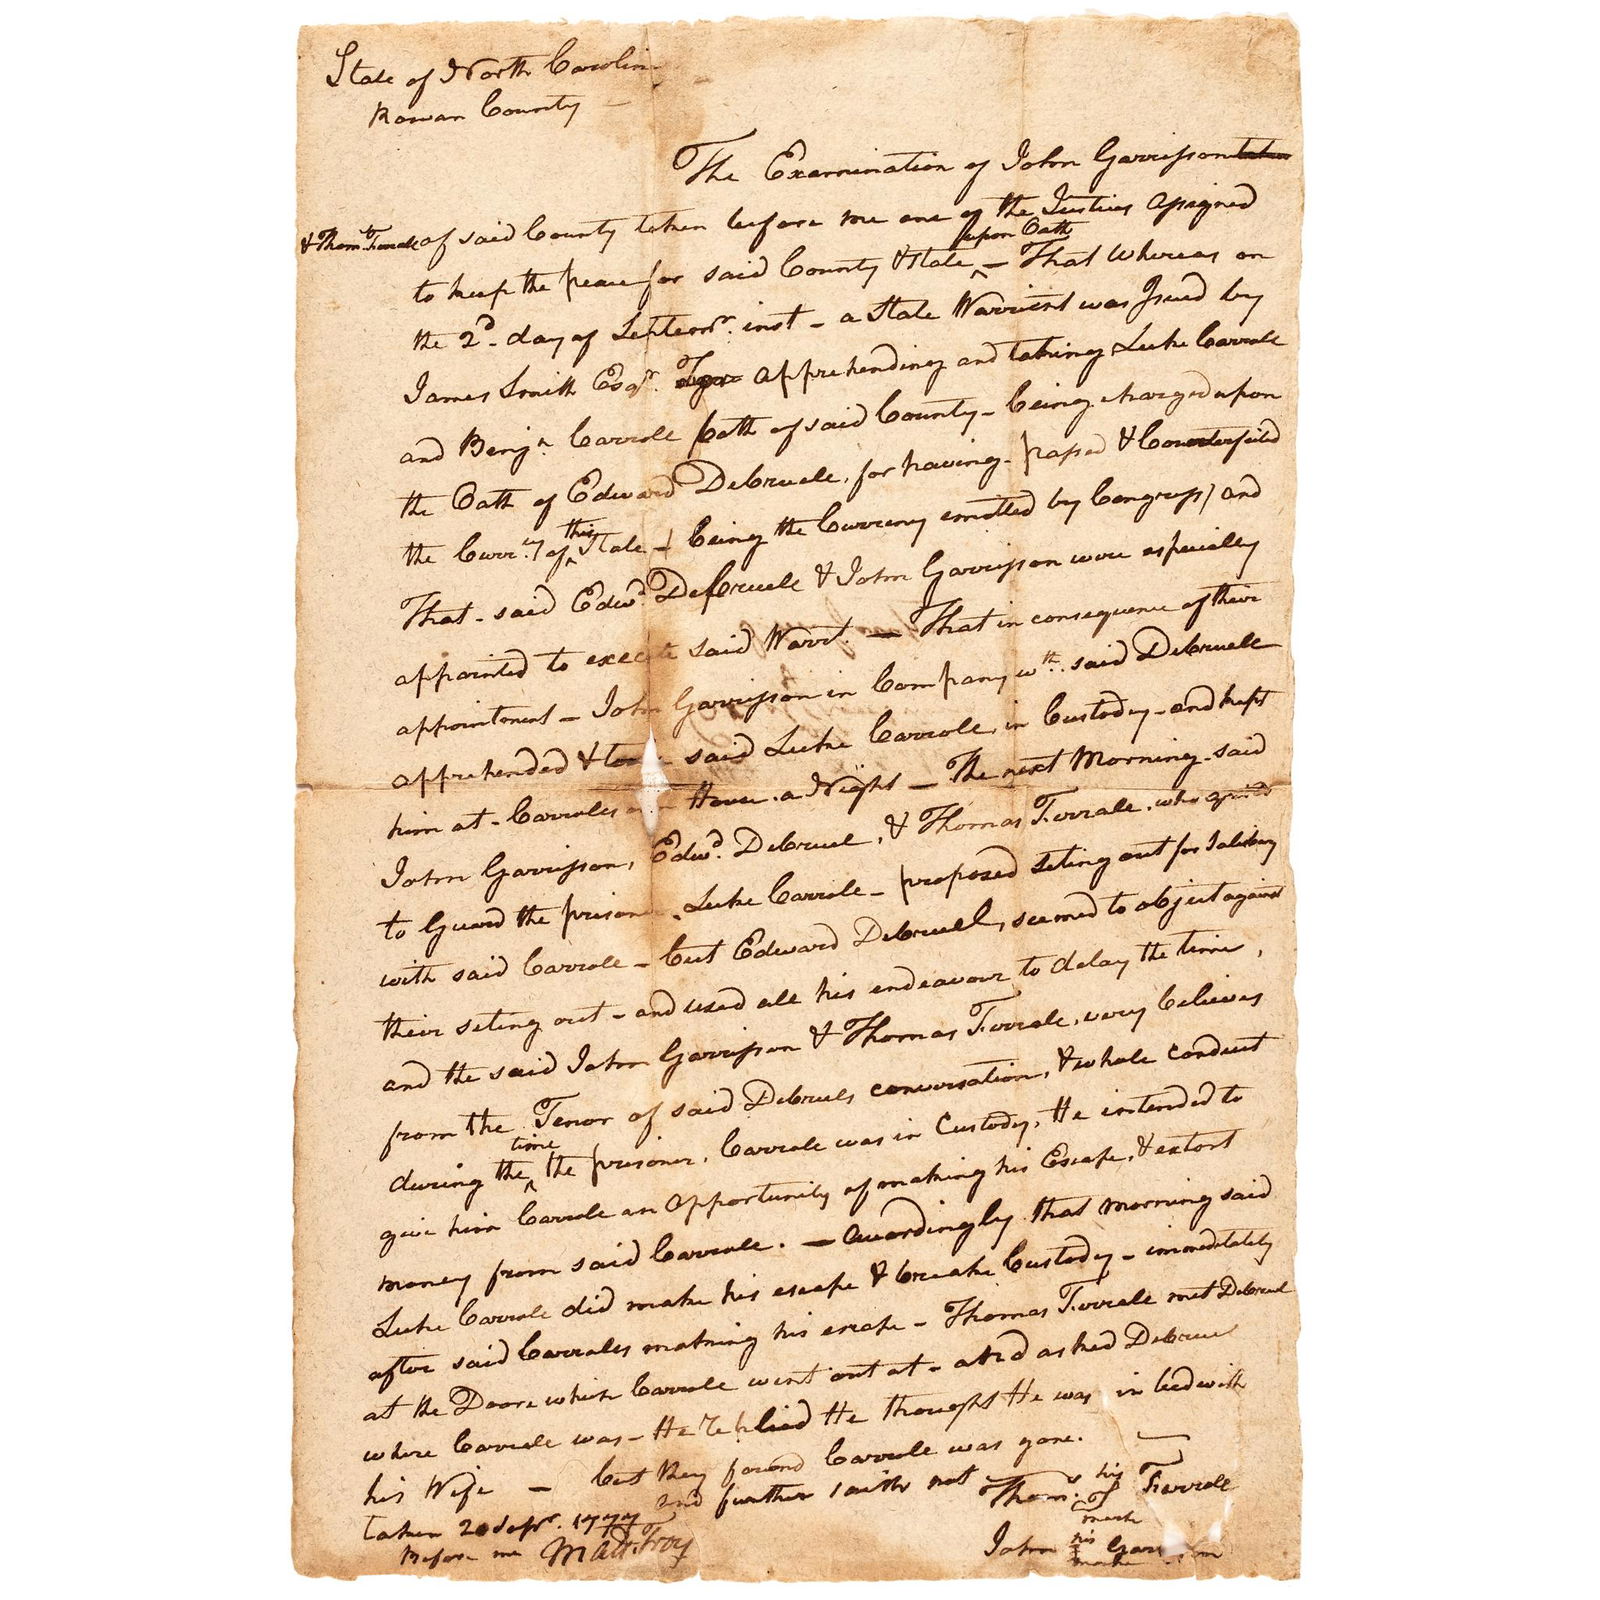 State of North Carolin
Rowan County
The Examination of John Garrisson taken
& Thoms. Firrale of said County taken before me one of the Justices Assigned
upon Oath
to keep the peace for said County & State ^ – That Whereas on
the 2d. day of Septemr. inst – a State Warrient was Isued by
James Smith Esqr. For apprehending and taking Luke Carrole
and Benjn. Carrole both of said County – being charged upon
the Oath of Edward Debruele, for having passed & Counterfeited
this
the Curr.cy of ^ State – (being the Currency emitted by Congress) and
That said Edwd. Debruele & John Garrisson were especially
appointed to execute said Warrt. – That in consequence of their
appointment – John Garrisson in Company wth. said Debruele
apprehended & took said Luke Carrole, in Custody – and kept
him at – Carroles own House a Night – The next Morning said
John Garrisson, Edwd. Debruel, & Thomas Firrale, who agreed
to Guard the prisoner, Luke Carrole – proposed seting out for Salisbury
with said Carrole – but Edward Debruell, seemed to object against
their seting out – and used all his endeavour to delay the time,
and the said John Garrisson & Thomas Firrale, very believes
from the Tenor of said Debruels conversation, & whole conduct
time
during the ^ the prisoner, Carrole was in Custody, He intended to
give him Carrole an Opportunity of making his Escape, & extort
money from said Carrole. – Accordingly that morning said
Luke Carrole did make his escape & break Custody – immediately
after said Carroles making his escape – Thomas Firrale met Debruel
at the Door which Carrole went out at – and asked Debruel
where Carrole was – He replied He thought He was in bed with
his Wife – but they found Carrole was gone.
and further saith not
taken 20 Sepr. 1777
Before me Matt. Troy
Thoms. his F Firrale
mark
John his I Garrisson
mark